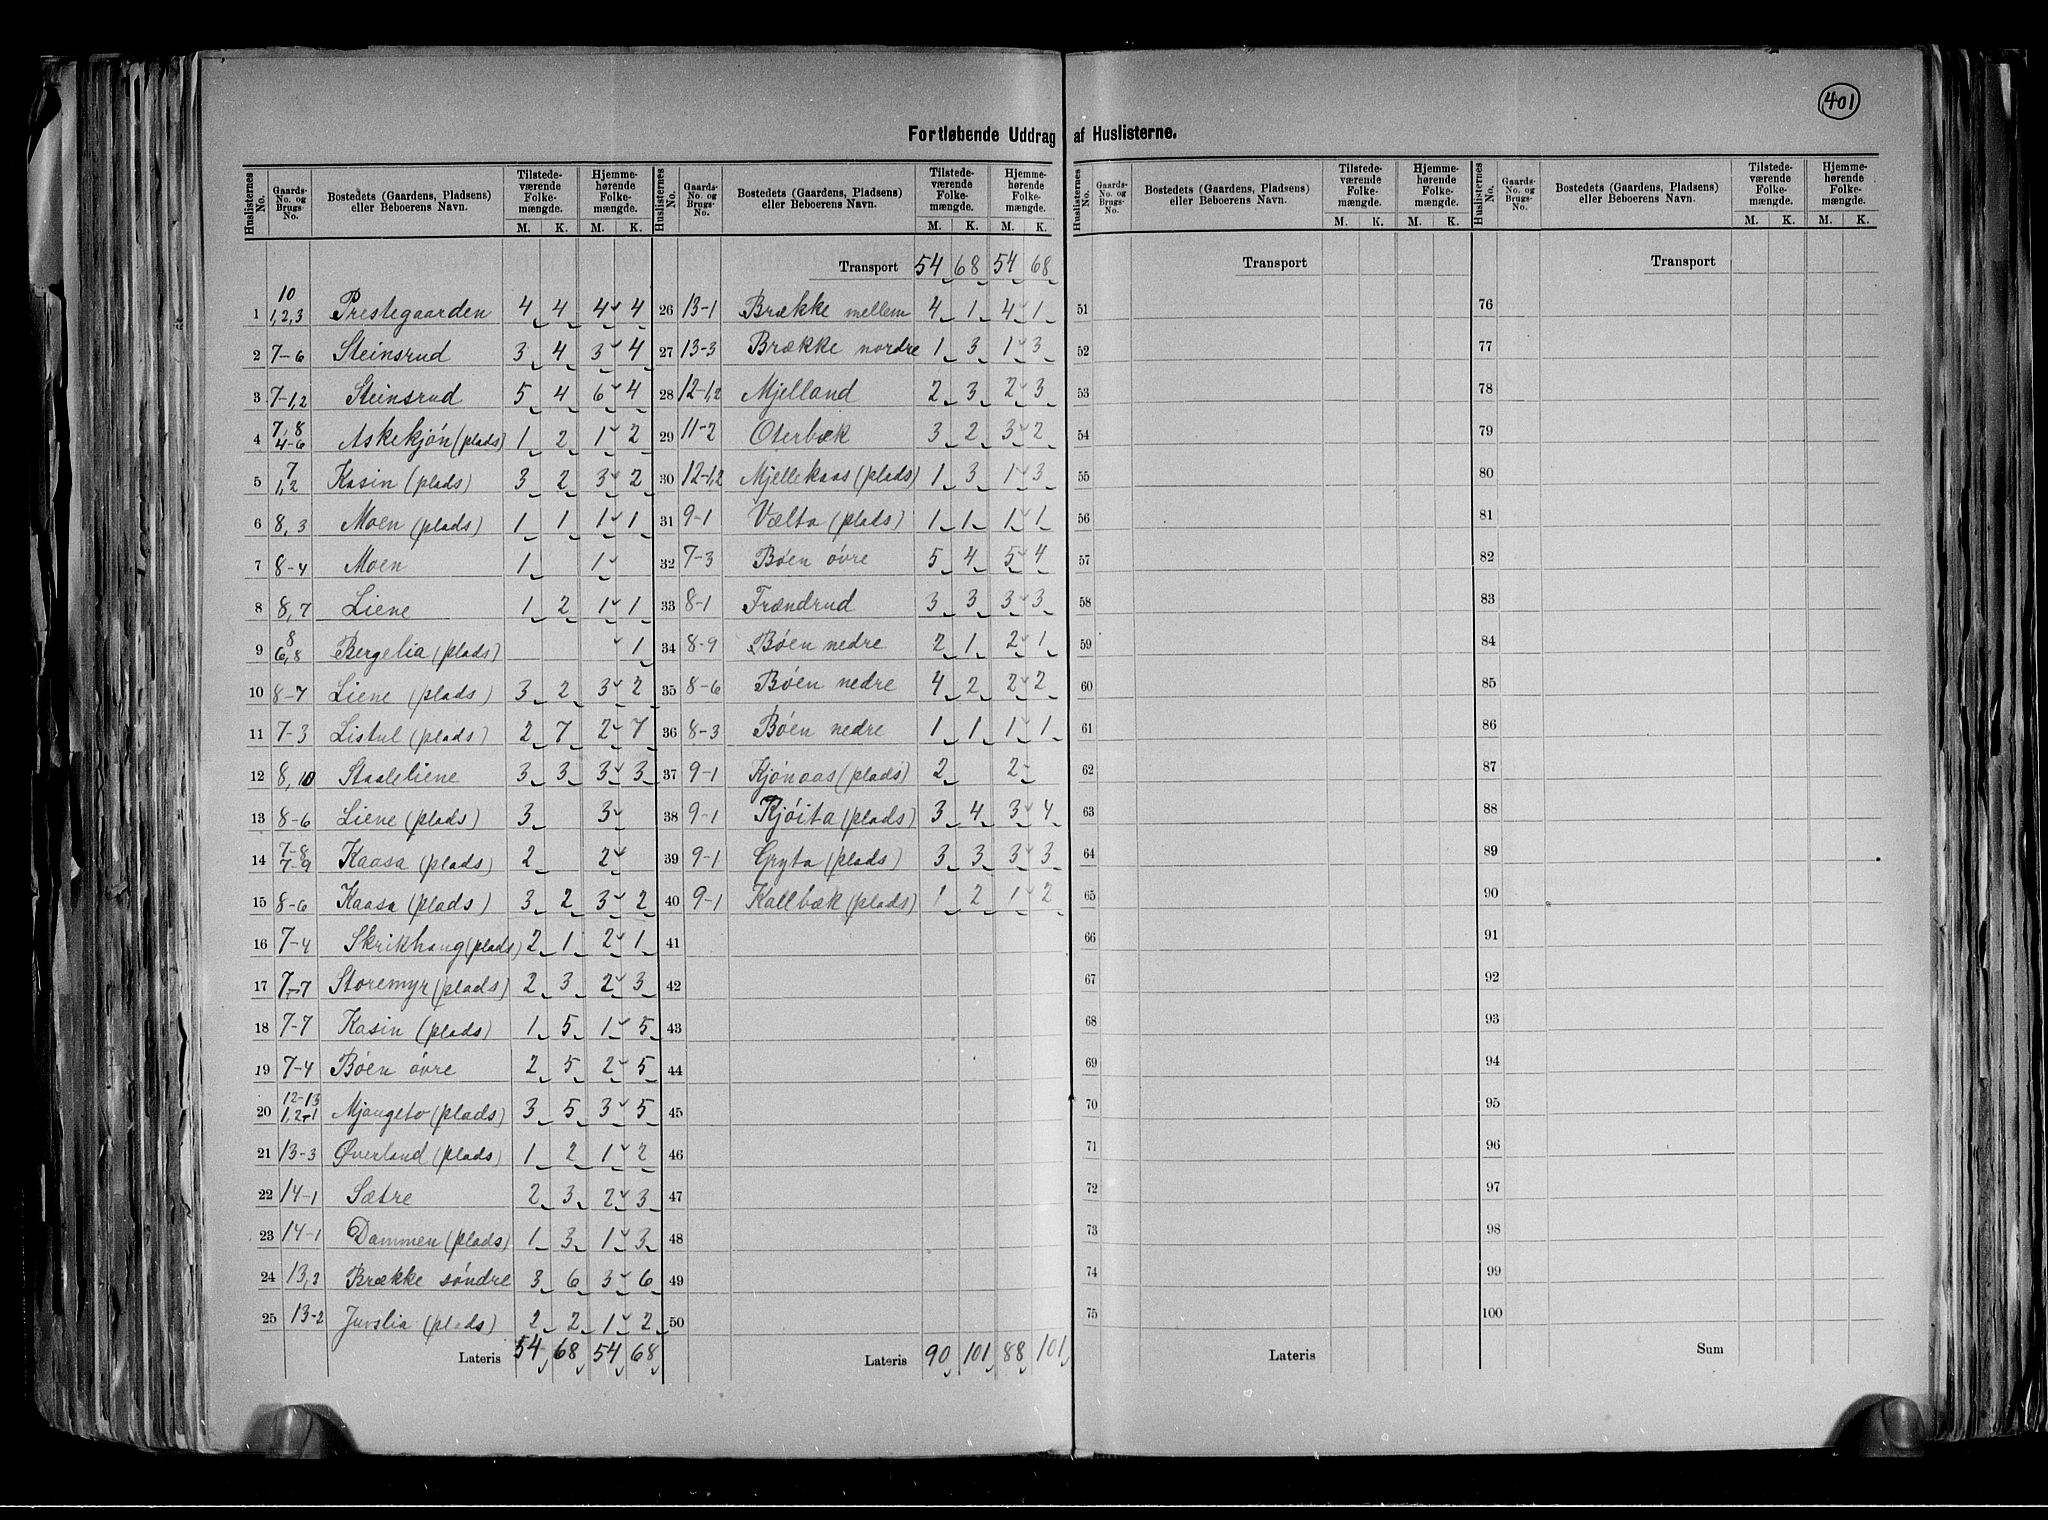 401
Fortløbende Uddrag af Huslisterne.
Huslisternes No. | Gaards-No. og Brugs-No. | Bostedets (Gaardens, Pladsens) eller Beboerens Navn. | Tilstedeværende Folkemængde. M. K. | Hjemmehørende Folkemængde. M. K.
1 | 10 1,2,3 | Prestegaarden | 4 | 4 | 4 | 4
2 | 7-6 | Steinsrud | 3 | 4 | 3 | 4
3 | 7-1,2 | Steinsrud | 5 | 4 | 6 | 4
4 | 7,8 4-6 | Askekjøn (plads) | 1 | 2 | 1 | 2
5 | 7 1,2 | Kasin (plads) | 3 | 2 | 3 | 2
6 | 8,3 | Moen (plads) | 1 | 1 | 1 | 1
7 | 8-4 | Moen | 1 | | 1 |
8 | 8,7 | Liene | 1 | 2 | 1 | 1
9 | 8 6,8 | Bergelia (plads) | | | | 1
10 | 8-7 | Liene (plads) | 3 | 2 | 3 | 2
11 | 7-3 | Listul (plads) | 2 | 7 | 2 | 7
12 | 8,10 | Staaleliene | 3 | 3 | 3 | 3
13 | 8-6 | Liene (plads) | 3 | | 3 |
14 | 7-8 7-9 | Kaasa (plads) | 2 | | 2 |
15 | 8-6 | Kaasa (plads) | 3 | 2 | 3 | 2
16 | 7-4 | Skrikhaug (plads) | 2 | 1 | 2 | 1
17 | 7-7 | Storemyr (plads) | 2 | 3 | 2 | 3
18 | 7-7 | Kasin (plads) | 1 | 5 | 1 | 5
19 | 7-4 | Bøen øvre | 2 | 5 | 2 | 5
20 | 12-13 1,2-1 | Mjøngeto (plads) | 3 | 5 | 3 | 5
21 | 13-3 | Øverland (plads) | 1 | 2 | 1 | 2
22 | 14-1 | Sætre | 2 | 3 | 2 | 3
23 | 14-1 | Dammen (plads) | 1 | 3 | 1 | 3
24 | 13,2 | Brække søndre | 3 | 6 | 3 | 6
25 | 13-2 | Juvslia (plads) | 2 | 2 | 1 | 2
Lateris 54 68 54 68
Huslisternes No. | Gaards-No. og Brugs-No. | Bostedets (Gaardens, Pladsens) eller Beboerens Navn. | Tilstedeværende Folkemængde. M. K. | Hjemmehørende Folkemængde. M. K.
Transport 54 68 54 68
26 | 13-1 | Brække mellem | 4 | 1 | 4 | 1
27 | 13-3 | Brække nordre | 1 | 3 | 1 | 3
28 | 12-1,2 | Mjelland | 2 | 3 | 2 | 3
29 | 11-2 | Oterbæk | 3 | 2 | 3 | 2
30 | 12-1,2 | Mjellekaas (plads) | 1 | 3 | 1 | 3
31 | 9-1 | Vælta (plads) | 1 | 1 | 1 | 1
32 | 7-3 | Bøen øvre | 5 | 4 | 5 | 4
33 | 8-1 | Frændrud | 3 | 3 | 3 | 3
34 | 8-9 | Bøen nedre | 2 | 1 | 2 | 1
35 | 8-6 | Bøen nedre | 4 | 2 | 2 | 2
36 | 8-3 | Bøen nedre | 1 | 1 | 1 | 1
37 | 9-1 | Kjønaas (plads) | 2 | | 2 |
38 | 9-1 | Kjøita (plads) | 3 | 4 | 3 | 4
39 | 9-1 | Gryta (plads) | 3 | 3 | 3 | 3
40 | 9-1 | Kallbæk (plads) | 1 | 2 | 1 | 2
41
42
43
44
45
46
47
48
49
50
Lateris 90 101 88 101
Huslisternes No. | Gaards-No. og Brugs-No. | Bostedets (Gaardens, Pladsens) eller Beboerens Navn. | Tilstedeværende Folkemængde. M. K. | Hjemmehørende Folkemængde. M. K.
Transport
51
52
53
54
55
56
57
58
59
60
61
62
63
64
65
66
67
68
69
70
71
72
73
74
75
Lateris
Huslisternes No. | Gaards-No. og Brugs-No. | Bostedets (Gaardens, Pladsens) eller Beboerens Navn. | Tilstedeværende Folkemængde. M. K. | Hjemmehørende Folkemængde. M. K.
Transport
76
77
78
79
80
81
82
83
84
85
86
87
88
89
90
91
92
93
94
95
96
97
98
99
100
Sum